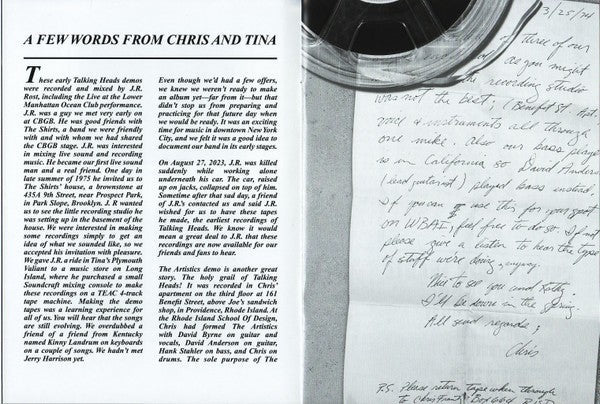 A FEW WORDS FROM CHRIS AND TINA
These early Talking Heads demos
were recorded and mixed by J.R.
Rost, including the Live at the Lower
Manhattan Ocean Club performance.
J.R. was a guy we met very early on
at CBGB. He was good friends with
The Shirts, a band we were friendly
with and with whom we had shared
the CBGB stage. J.R. was interested
in mixing live sound and recording
music. He became our first live sound
man and a real friend. One day in
late summer of 1975 he invited us to
The Shirts' house, a brownstone at
435A 9th Street, near Prospect Park,
in Park Slope, Brooklyn. J. R wanted
us to see the little recording studio he
was setting up in the basement of the
house. We were interested in making
some recordings simply to get an
idea of what we sounded like, so we
accepted his invitation with pleasure.
We gave J.R. a ride in Tina's Plymouth
Valiant to a music store on Long
Island, where he purchased a small
Soundcraft mixing console to make
these recordings on a TEAC 4-track
tape machine. Making the demo
tapes was a learning experience for
all of us. You will hear that the songs
are still evolving. We overdubbed a
friend of a friend from Kentucky
named Kinny Landrum on keyboards
on a couple of songs. We hadn't met
Jerry Harrison yet.
Even though we'd had a few offers,
we knew we weren't ready to make
an album yet—far from it—but that
didn't stop us from preparing and
practicing for that future day when
we would be ready. It was an exciting
time for music in downtown New York
City, and we felt it was a good idea to
document our band in its early stages.
On August 27, 2023, J.R. was killed
suddenly while working alone
underneath his car. The car, raised
up on jacks, collapsed on top of him.
Sometime after that sad day, a friend
of J.R.'s contacted us and said J.R.
wished for us to have these tapes he
made, the earliest recordings of
Talking Heads. We know it would
mean a great deal to J.R. that these
recordings are now available for our
friends and fans to hear.
The Artistics demo is another great
story. The holy grail of Talking
Heads! It was recorded in Chris'
apartment on the third floor at 161
Benefit Street, above Joe's sandwich
shop, in Providence, Rhode Island. At
the Rhode Island School Of Design,
Chris had formed The Artistics
with David Byrne on guitar and
vocals, David Anderson on guitar,
Hank Stahler on bass, and Chris on
drums. The sole purpose of The
3/25/74
three of our
as you might
the recording studio
was not the best; (Benefit St. Apt.
voice & instruments all through
one mike. Also our bass player
is in California so David Anderson
(lead guitarist) played bass instead.
If you can use this for your spot
on WBAI, feel free to do so. If not
please give a listen to hear the type
of stuff were doing, anyway.
Nice to see you and Kathy
I'll be down in the Spring.
All send regards,
Chris
P.S. Please return tape when through
to Chris Frantz, Box 664 RISD